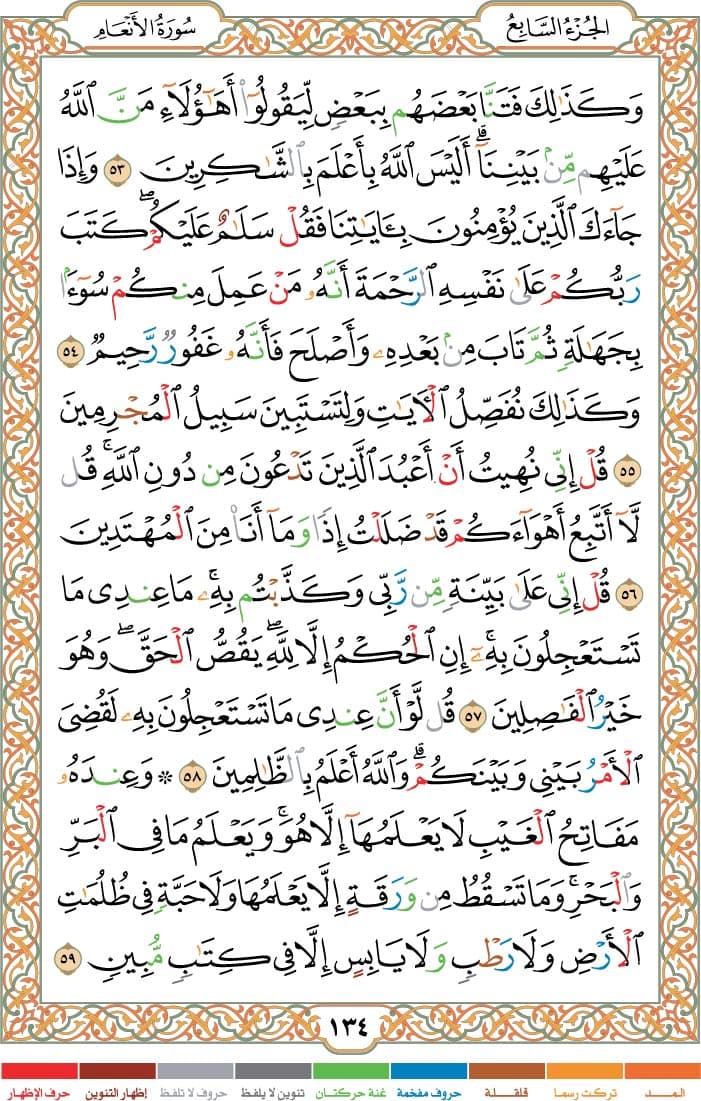 الجزء السابع
سورة الأنعام
وَكَذَٰلِكَ فَتَنَّا بَعْضَهُم بِبَعْضٍ لِّيَقُولُوٓا۟ أَهَٰٓؤُلَآءِ مَنَّ ٱللَّهُ
عَلَيْهِم مِّنۢ بَيْنِنَآ ۗ أَلَيْسَ ٱللَّهُ بِأَعْلَمَ بِٱلشَّٰكِرِينَ ٥٣ وَإِذَا
جَآءَكَ ٱلَّذِينَ يُؤْمِنُونَ بِـَٔايَٰتِنَا فَقُلْ سَلَٰمٌ عَلَيْكُمْ ۖ كَتَبَ
رَبُّكُمْ عَلَىٰ نَفْسِهِ ٱلرَّحْمَةَ ۖ أَنَّهُۥ مَنْ عَمِلَ مِنكُمْ سُوٓءًۢا
بِجَهَٰلَةٍ ثُمَّ تَابَ مِنۢ بَعْدِهِۦ وَأَصْلَحَ فَأَنَّهُۥ غَفُورٌ رَّحِيمٌ ٥٤
وَكَذَٰلِكَ نُفَصِّلُ ٱلْـَٔايَٰتِ وَلِتَسْتَبِينَ سَبِيلُ ٱلْمُجْرِمِينَ
٥٥ قُلْ إِنِّى نُهِيتُ أَنْ أَعْبُدَ ٱلَّذِينَ تَدْعُونَ مِن دُونِ ٱللَّهِ ۚ قُل
لَّآ أَتَّبِعُ أَهْوَآءَكُمْ ۙ قَدْ ضَلَلْتُ إِذًا وَمَآ أَنَا۠ مِنَ ٱلْمُهْتَدِينَ
٥٦ قُلْ إِنِّى عَلَىٰ بَيِّنَةٍ مِّن رَّبِّى وَكَذَّبْتُم بِهِۦ ۚ مَا عِندِى مَا
تَسْتَعْجِلُونَ بِهِۦٓ ۚ إِنِ ٱلْحُكْمُ إِلَّا لِلَّهِ ۖ يَقُصُّ ٱلْحَقَّ ۖ وَهُوَ
خَيْرُ ٱلْفَٰصِلِينَ ٥٧ قُل لَّوْ أَنَّ عِندِى مَا تَسْتَعْجِلُونَ بِهِۦ لَقُضِىَ
ٱلْأَمْرُ بَيْنِى وَبَيْنَكُمْ ۗ وَٱللَّهُ أَعْلَمُ بِٱلظَّٰلِمِينَ ٥٨ ۞ وَعِندَهُۥ
مَفَاتِحُ ٱلْغَيْبِ لَا يَعْلَمُهَآ إِلَّا هُوَ ۚ وَيَعْلَمُ مَا فِى ٱلْبَرِّ
وَٱلْبَحْرِ ۚ وَمَا تَسْقُطُ مِن وَرَقَةٍ إِلَّا يَعْلَمُهَا وَلَا حَبَّةٍ فِى ظُلُمَٰتِ
ٱلْأَرْضِ وَلَا رَطْبٍ وَلَا يَابِسٍ إِلَّا فِى كِتَٰبٍ مُّبِينٍ ٥٩
١٣٤
المـــد تركت رسما قلقلة حروف مفخمة غنة حركتان تنوين لا يلفظ حروف لا تلفظ إظهار التنوين حرف الإظهار